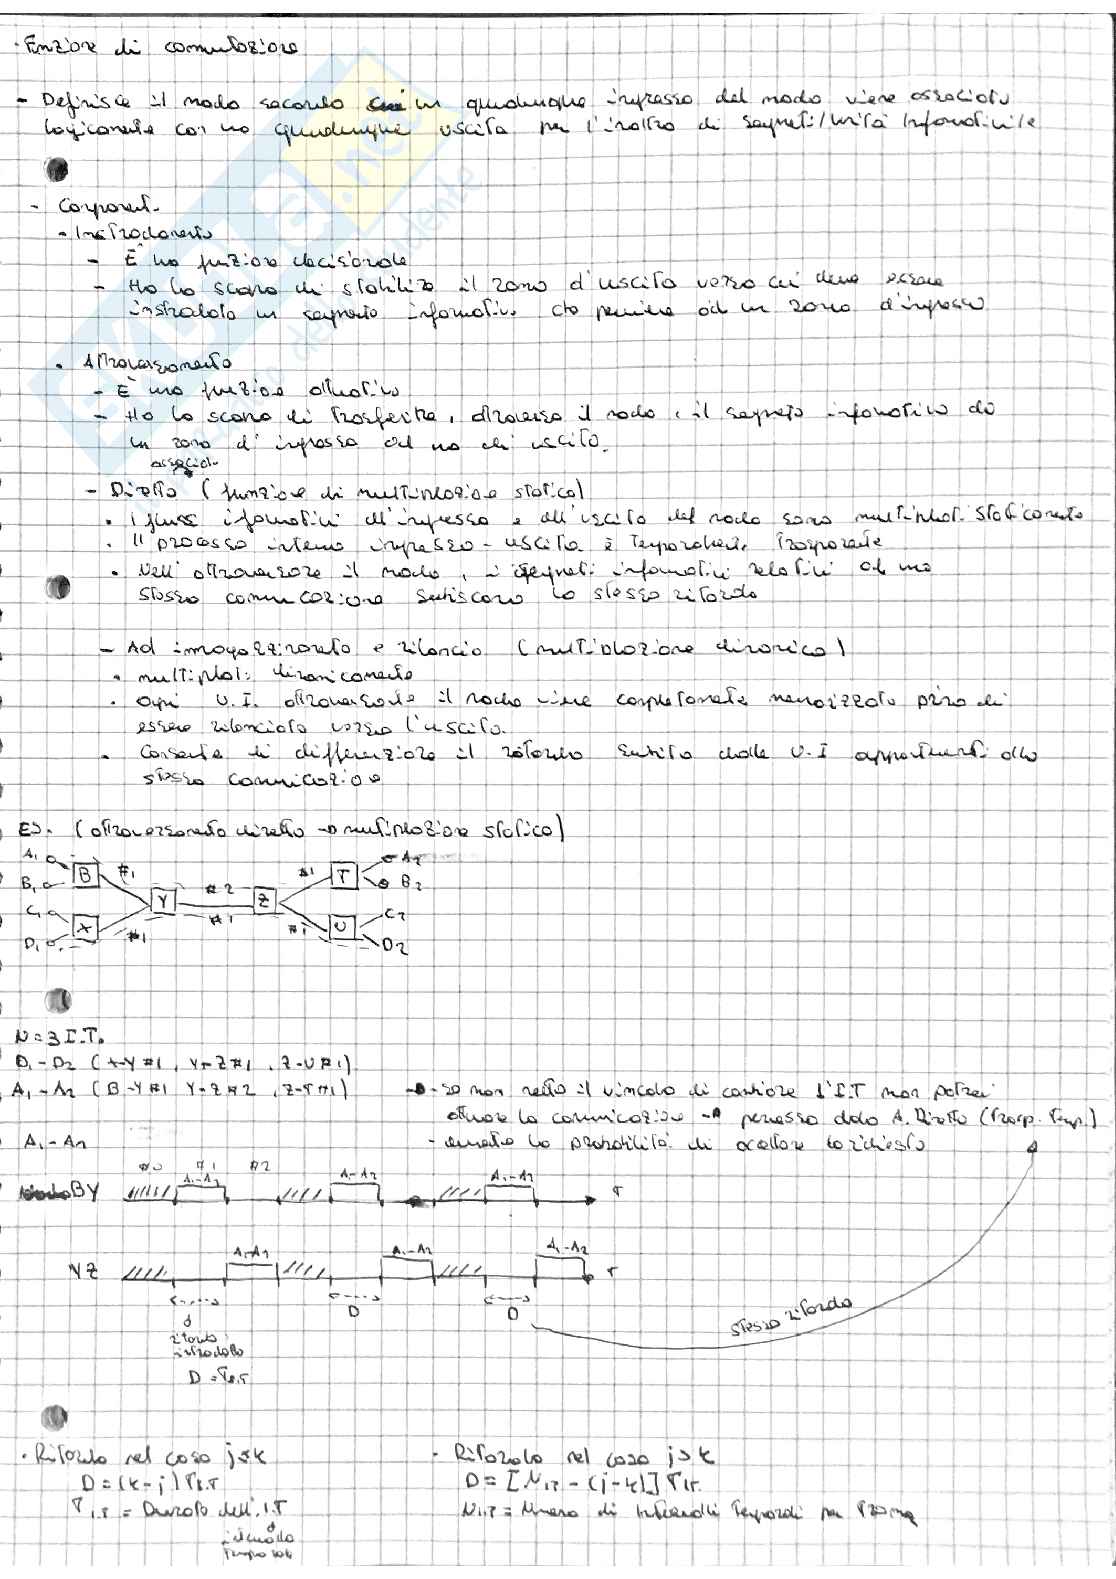 · Funzione di commutazione
- Definisce il modo secondo cui un qualunque ingresso del nodo viene associato
logicamente con una qualunque uscita per l'inoltro di segmenti/unità informativi/e
- Componenti
• Instradamento
- È una funzione decisionale
- Ha lo scopo di stabilire il ramo d'uscita verso cui deve essere
instradato un segmento informativo che perviene ad un ramo d'ingresso
• Attraversamento
- È una funzione attuativa
- Ha lo scopo di trasferire, attraverso il nodo, il segmento informativo da
un ramo d'ingresso ad uno di uscita.
associat.
- Diretto (funzione di multiplazione statica)
• I flussi informativi all'ingresso e all'uscita del nodo sono multiplati staticamente
• Il processo interno ingresso-uscita è temporalmente trasparente
• Nell'attraversare il nodo, i segmenti informativi relativi ad una
stessa comunicazione subiscono lo stesso ritardo
- Ad immagazzinamento e rilancio (multiplazione dinamica)
• multiplati dinamicamente
• Ogni U.I. attraversante il nodo viene completamente memorizzata prima di
essere rilanciata verso l'uscita.
• Consente di differenziare il ritardo subito dalle U.I appartenenti alla
stessa comunicazione
ES. (attraversamento diretto → multiplazione statica)
A1 B #1 #1 T A2
B1 Y #2 Z B2
C1 X #1 #1 #1 U C2
D1 D2
N=3 I.T.
D1-D2 (X-Y #1, Y-Z #1, Z-U #1)
A1-A2 (B-Y #1 Y-Z #2, Z-T #1) → - se non metto il vincolo di cambiare l'I.T non potrei
attuare la comunicazione → permesso dallo A. Diretto (Trasp. Temp.)
A1-A2 - aumenta la probabilità di accettare la richiesta
#0 #1 #2
BY A1-A2 A1-A2 A1-A2 T
YZ A1-A2 A1-A2 A1-A2 T
D D
ritardo
introdotto
D = T I.T
stesso ritardo
• Ritardo nel caso j≤k
D = (k-j) T I.T
T I.T = Durata dell'I.T
intervallo
temporale
• Ritardo nel caso j>k
D = [N IT - (j-k)] T IT
N I.T = Numero di Intervalli Temporali per Trama